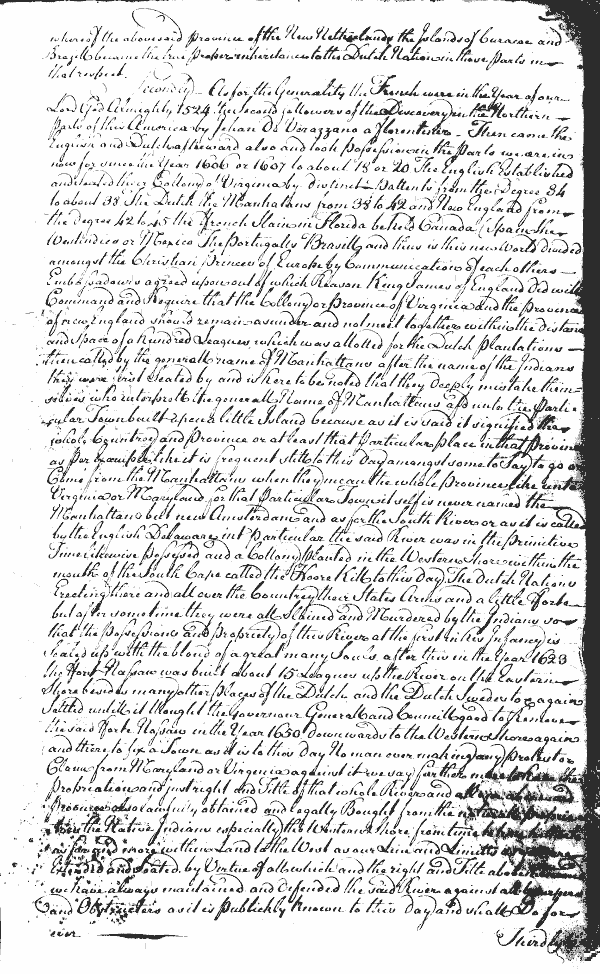 whereof the abovesaid Province of the New Netherlands the Islands of Curacoe and
Brazill became the true Proper inheritance to the Dutch Nation in these Parts in
that respect.
Secondly As for the Generality the French were in the Year of our
Lord God Almighty 1524 the second followers of the Discovery in the Northern
Parts of this America by Jehan De Verazzano a florentister. Then came the
English and Dutch afterward also and took Possession in the Parts we are in
now for since the Year 1606 or 1607 to about 18 or 20 The English Established
and seated their Collony of Virginia by distinct Pattents from the Degree 34
to about 38 The Dutch the Manhatans from 38 to 42 and New England from
the degree 42 to 45 the French Slain in Florida beheld Canada Spain the
Westindies or Mexico The Portugalls Brasill and thus is this new World divided
amongst the Christian Princes of Europe by Communication of each others
Embassadours agreed upon out of which Reason King James of England did will
Command and Require that the Collony or Province of Virginia and the Province
of new England should remain asunder and not meet together within the distance
and space of a hundred Leagues which was allotted for the Dutch Plantations
then called by the generall name of Manhattans after the name of the Indians
they were first Seated by and is here to be noted that they Deeply mistake them
selves who interprett the generall Name of Manhattans unto the Parti
cular Town built upon a little Island because as it is said it signified the
whole Countrey and Province or at least that Particular place in that Province
as for example like it is frequent still to this Day amongst some to Say to go or
Come from the Manhattans when they mean the whole Province like unto
Virginia or Maryland for that Particular Town it self is never named the
Manhattans but new Amsterdam and as for the South River or as it is called
by the English Delaware in Particular the said River was in the Primitive
Time likewise possessed and a Collony planted in the Western Shore within the
mouth of the South Cape called the Hoore Kill to this Day The Dutch Nations
Erecting there and all over the Countrey their States Arms and a little Forte
but after some time they were all Slained and Murdered by the Indians so
that the Possessions and Propriety of this River at the first in his Infancy is
sealed up with the bloud of a great many Souls, after this in the Year 1623
the Fort Nassaw was built about 15 Leagues up the River on the Eastern
Shore besides many other Places of the Dutch and the Dutch Swedes to & again
settled untill it thought the Governour Generall and Council good to Remove
the said Forte Nassaw in the Year 1650 downwards to the Western Shore again
and there to fix a Town as it is to this Day No man ever making any Protest or
Claim from Maryland or Virginia against it we say further the
Propriation and just right and Title of that whole River and
Province also lawfully obtained and legally Bought from the
the Native Indians especially this Western Shore from time
as further more within Land to the West as our Line and Limitts
Extended and Seated by Virtue of all which and the right and Title above
we have always mantained and Defended the said River against all Usurpers
and Obstructers as it is Publickly known to this Day and shall Do for
ever
Thirdly